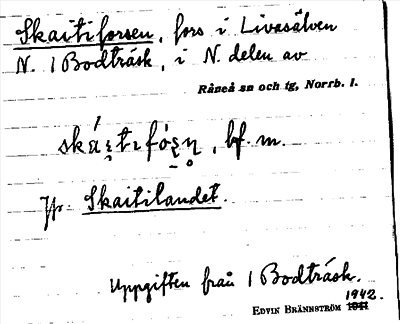 Skaitiforsen, fors i Livasälven
N. 1 Bodträsk, i N. delen av
Råneå sn och tg, Norrb. l.
bf. m.
Jfr Skaitilandet.
Uppgiften från 1 Bodträsk.
1942.
EDVIN BRÄNNSTRÖM 1941